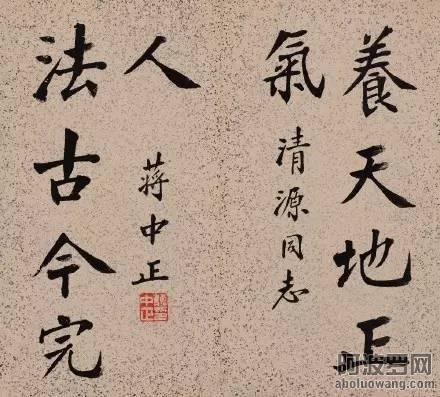 養天地正
氣
清源同志
法古今完
人
蔣中正
蔣中正印
阿波罗网
aboluowang.com